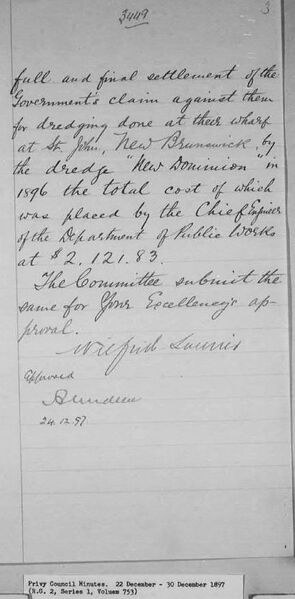 3449
3
full and final settlement of the
Government's claim against them
for dredging done at their wharf
at St. John, New Brunswick, by
the dredge "New Dominion" in
1896 the total cost of which
was placed by the Chief Engineer
of the Department of Public Works
at $2,121.83.
The Committee submit the
same for Your Excellency's ap-
proval.
Wilfrid Laurier
Approved
Aberdeen
24.12.97
Privy Council Minutes. 22 December - 30 December 1897
(R.G. 2, Series 1, Volume 753)